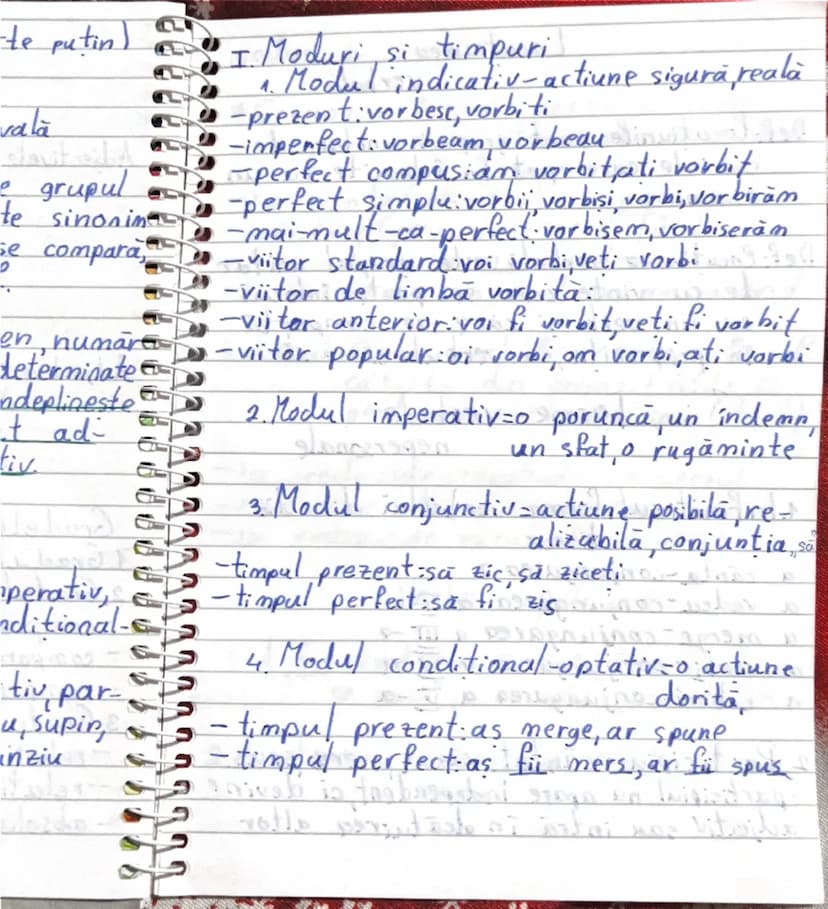 te puțin)
vală
e grupul
te sinonim
se compară,
en, număr
determinate
ndeplinește
t ad-
tiv.
mperativ,
ndițional-
tiv, par-
u, supin,
inziu
I. Moduri și timpuri
1. Modul indicativ-acțiune sigură, reală
-prezent: vorbesc, vorbiți
-imperfect: vorbeam, vorbeau
-perfect compus: am vorbit, ați vorbit
-perfect simplu: vorbii, vorbiși, vorbi, vorbirăm
-mai-mult-ca-perfect: vorbisem, vorbiserăm
-viitor standard: voi vorbi, veți vorbi
-viitor de limbă vorbită:
-viitor anterior: voi fi vorbit, veți fi vorbit
-viitor popular: oi vorbi, om vorbi, ați vorbi
2. Modul imperativ=o poruncă, un îndemn,
un sfat, o rugăminte
3. Modul conjunctiv=acțiune posibilă, re-
alizabilă, conjunția „să"
-timpul prezent: să zic, să ziceți
-timpul perfect: să fi zis
4. Modul condițional-optativ=o acțiune
dorită,
- timpul prezent: aș merge, ar spune
- timpul perfect: aș fii mers, ar fii spus